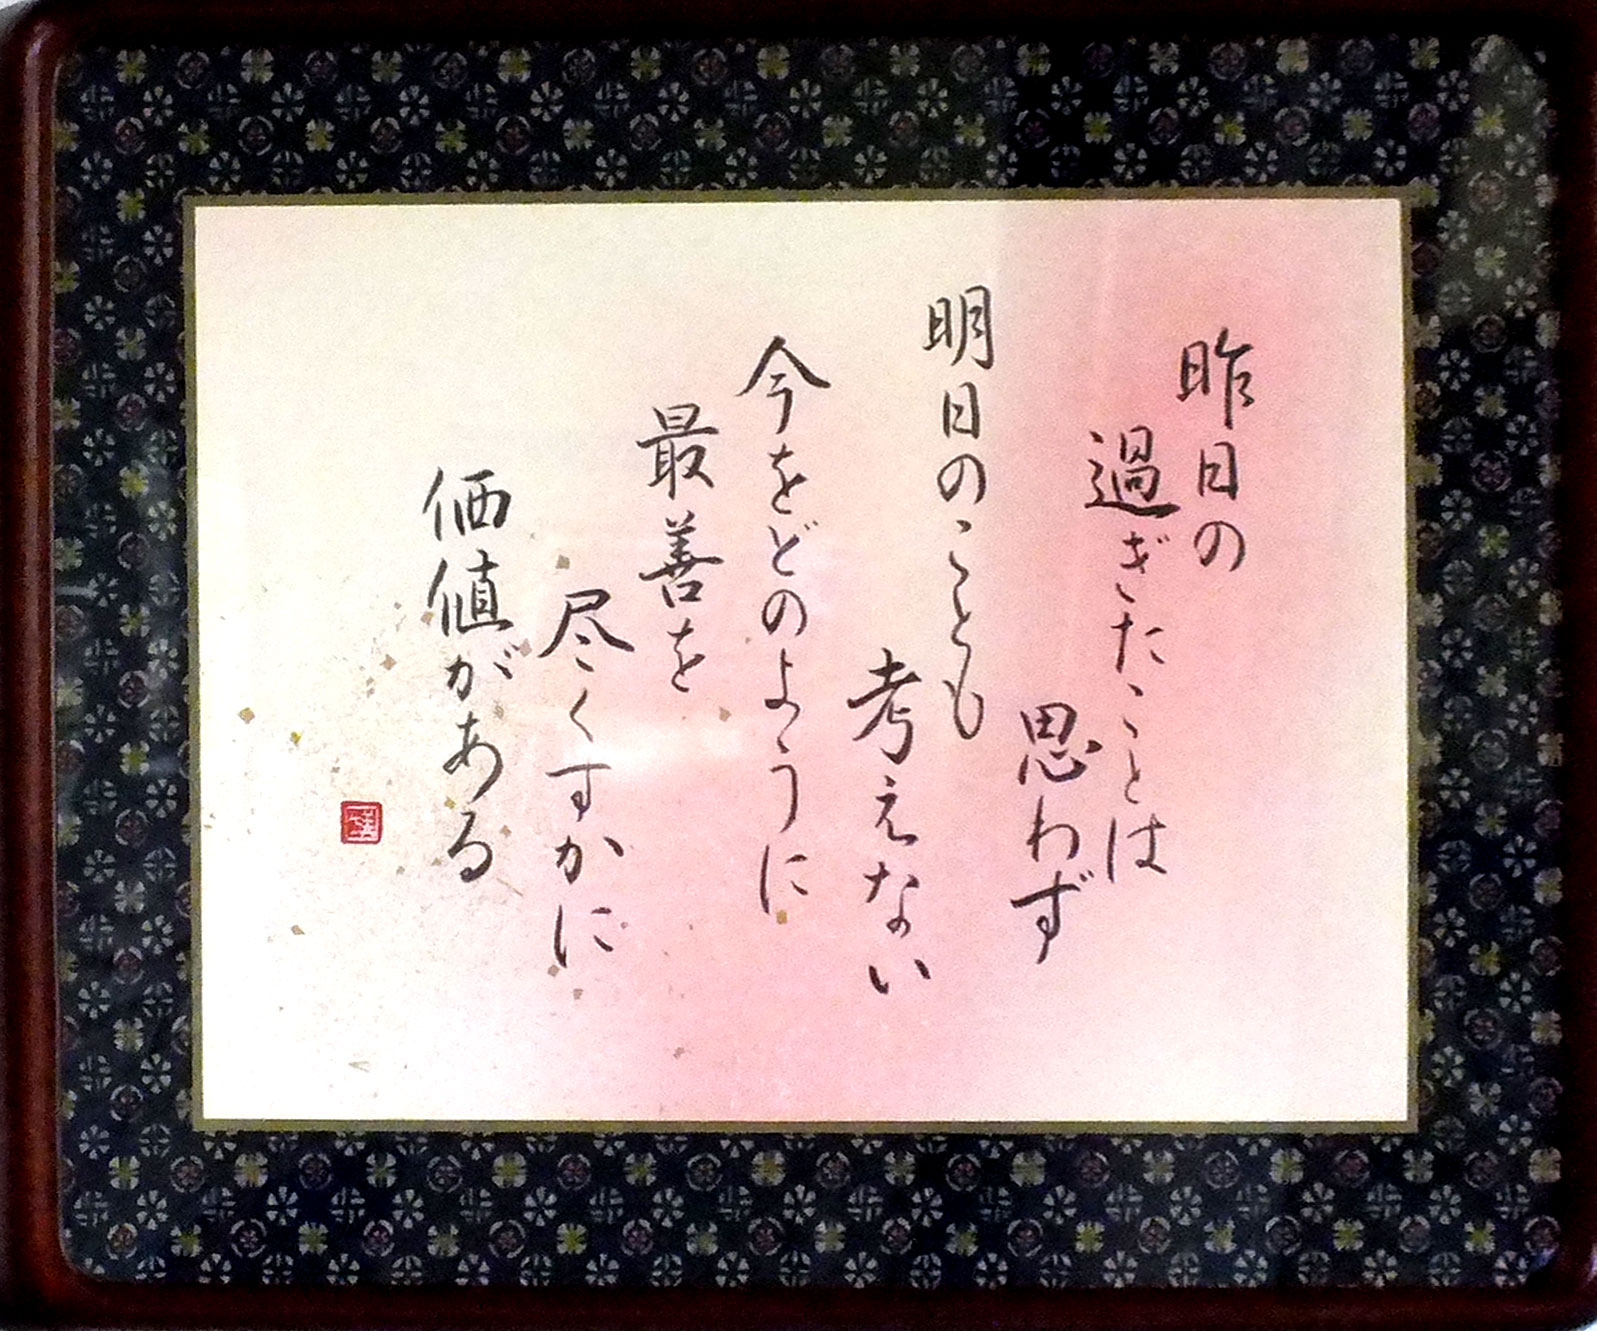 昨日の
過ぎたことは
思わず
明日のことも
考えない
今をどのように
最善を
尽くすかに
価値がある